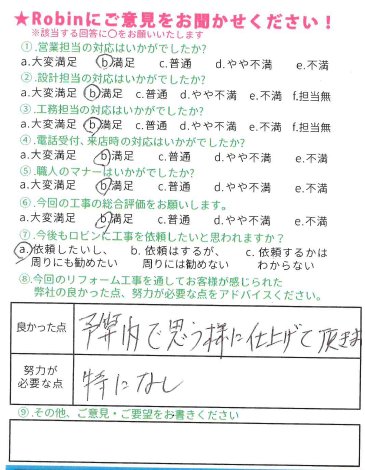 ★Robinにご意見をお聞かせください！
※該当する回答に○をお願いいたします
①.営業担当の対応はいかがでしたか?
a.大変満足 b.満足 c.普通 d.やや不満 e.不満
②.設計担当の対応はいかがでしたか?
a.大変満足 b.満足 c.普通 d.やや不満 e.不満 f.担当無
③.工務担当の対応はいかがでしたか?
a.大変満足 b.満足 c.普通 d.やや不満 e.不満 f.担当無
④.電話受付、来店時の対応はいかがでしたか?
a.大変満足 b.満足 c.普通 d.やや不満 e.不満
⑤.職人のマナーはいかがでしたか?
a.大変満足 b.満足 c.普通 d.やや不満 e.不満
⑥.今回の工事の総合評価をお願いします。
a.大変満足 b.満足 c.普通 d.やや不満 e.不満
⑦.今後もロビンに工事を依頼したいと思われますか？
a.依頼したいし、 b. 依頼はするが、 c. 依頼するかは
周りにも勧めたい 周りには勧めない わからない
⑧.今回のリフォーム工事を通してお客様が感じられた
弊社の良かった点、努力が必要な点をアドバイスください。
良かった点 予算内で思う様に仕上げて頂きま
努力が
必要な点 特になし
⑨.その他、ご意見・ご要望をお書きください